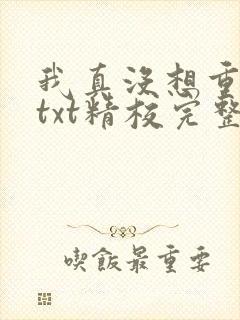 我真没想重
txt精校完整
喫飯最重要